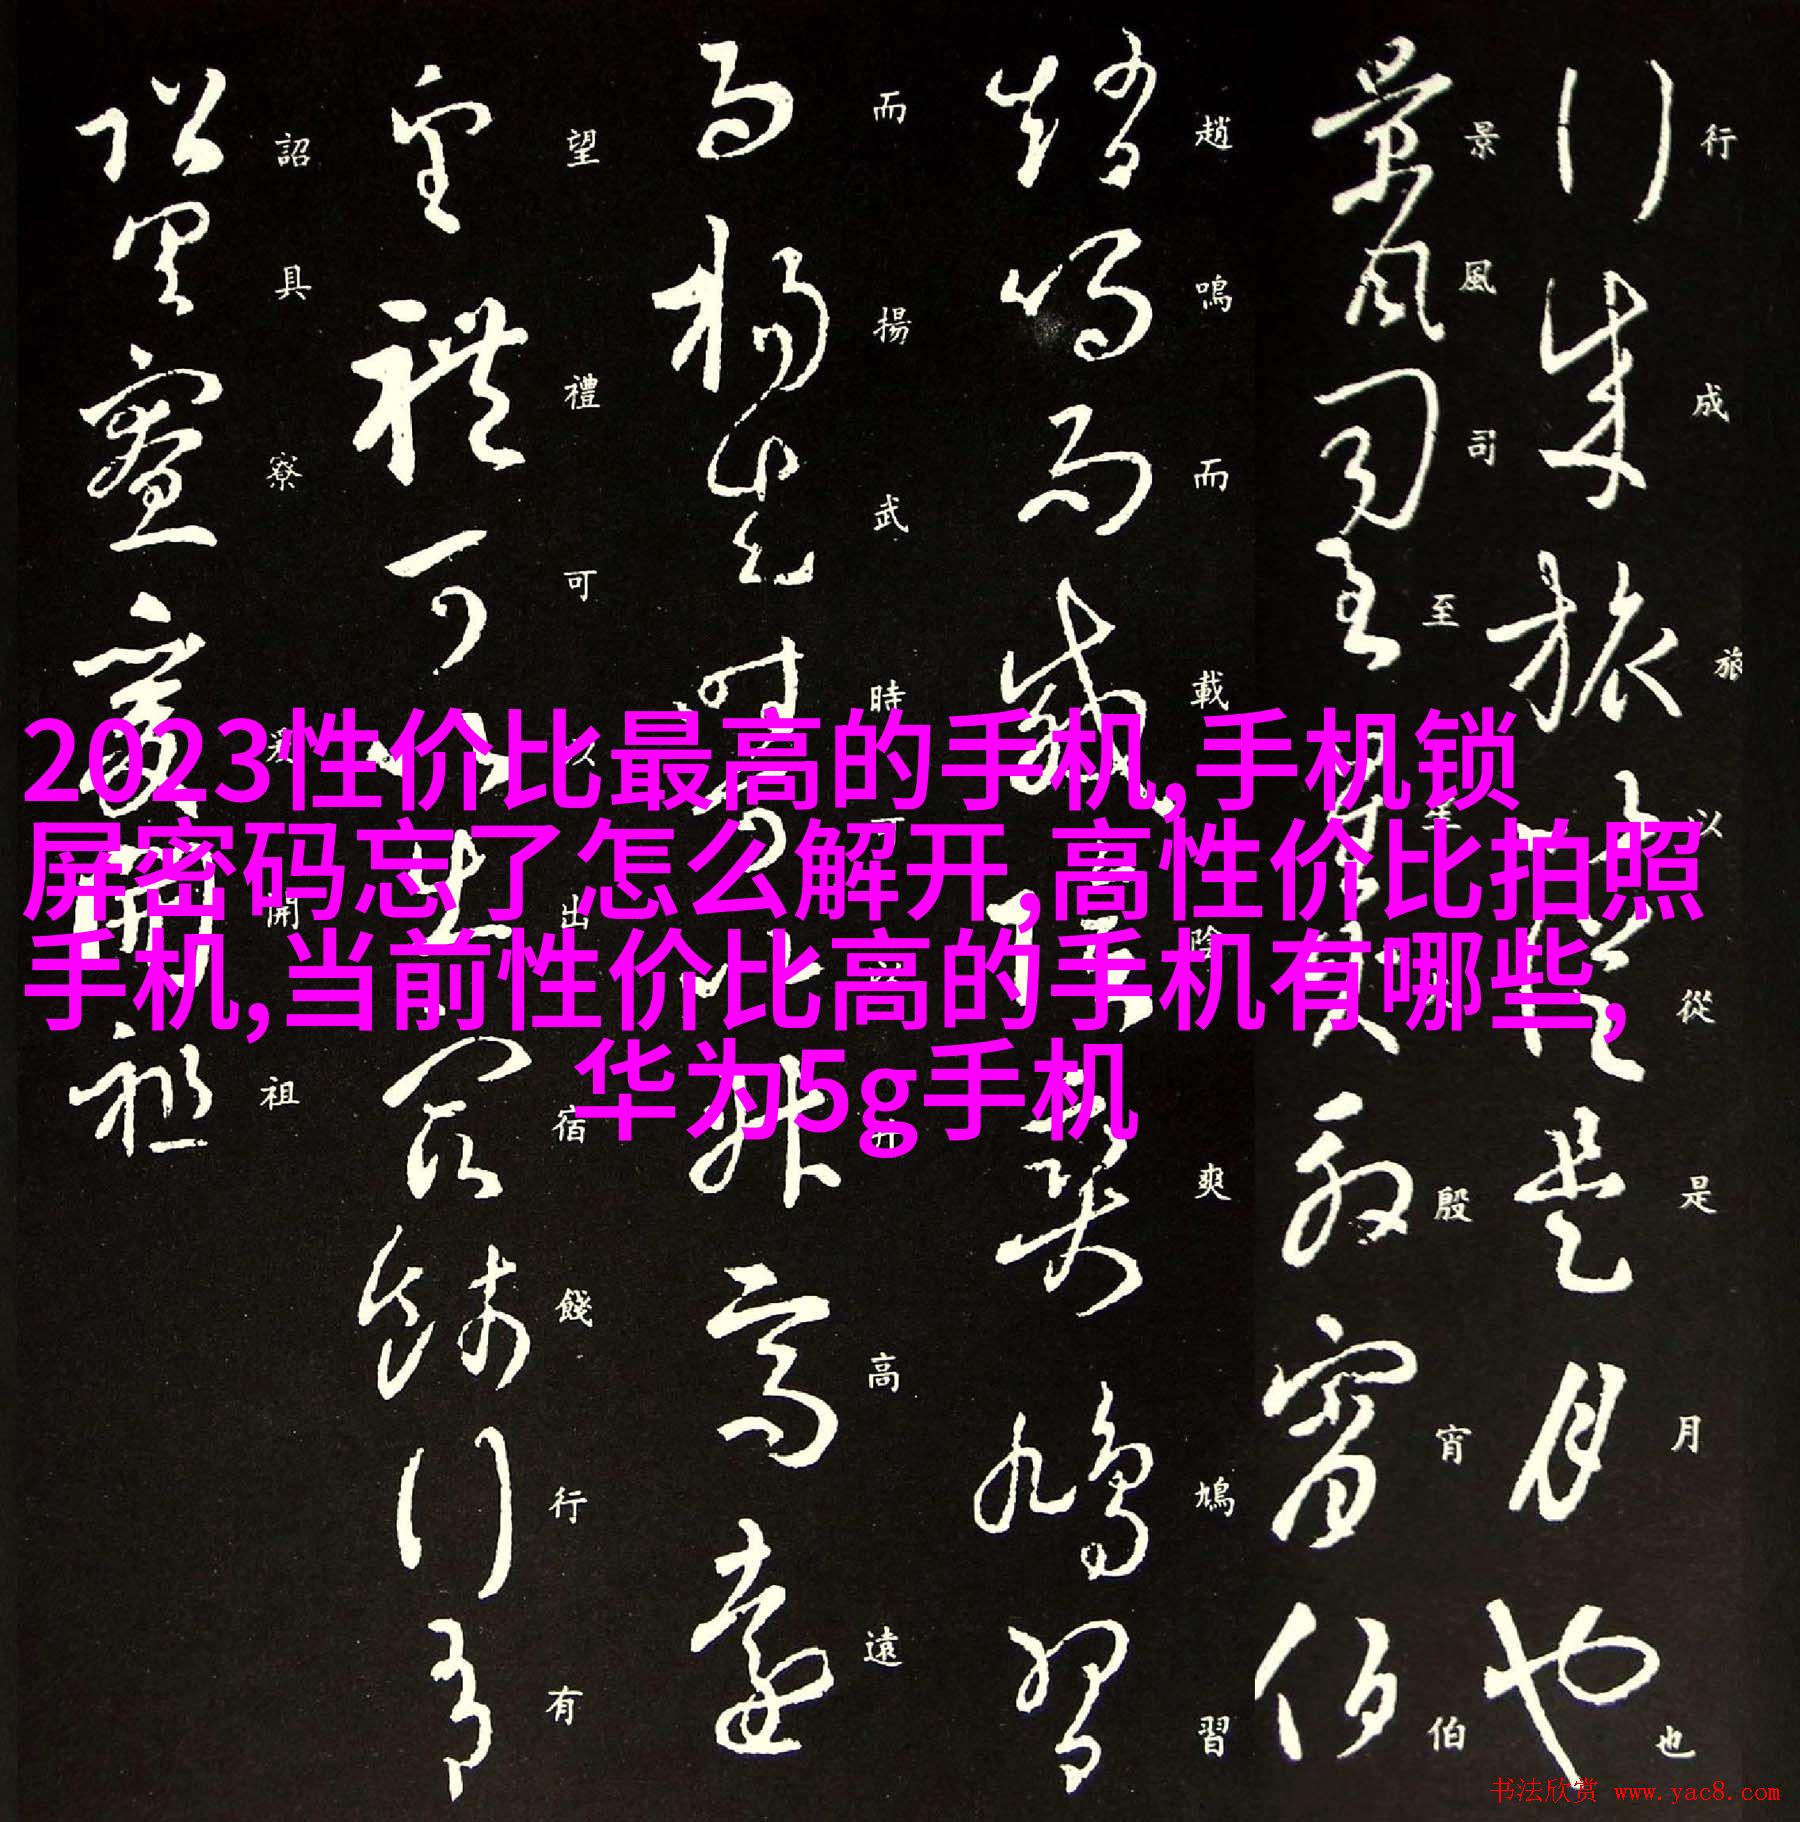 2023性价比最高的手机,手机锁
屏密码忘了怎么解开,高性价比拍照
手机,当前性价比高的手机有哪些,
华为5g手机
行成旅以從是月也
景風司至殷宵伯
趙鳴而載陰爽鳩習
而揚武時可以升高遠
望禮可以出宿餞行有
詔具寮爰開祖
书法欣赏 www.yac8.com